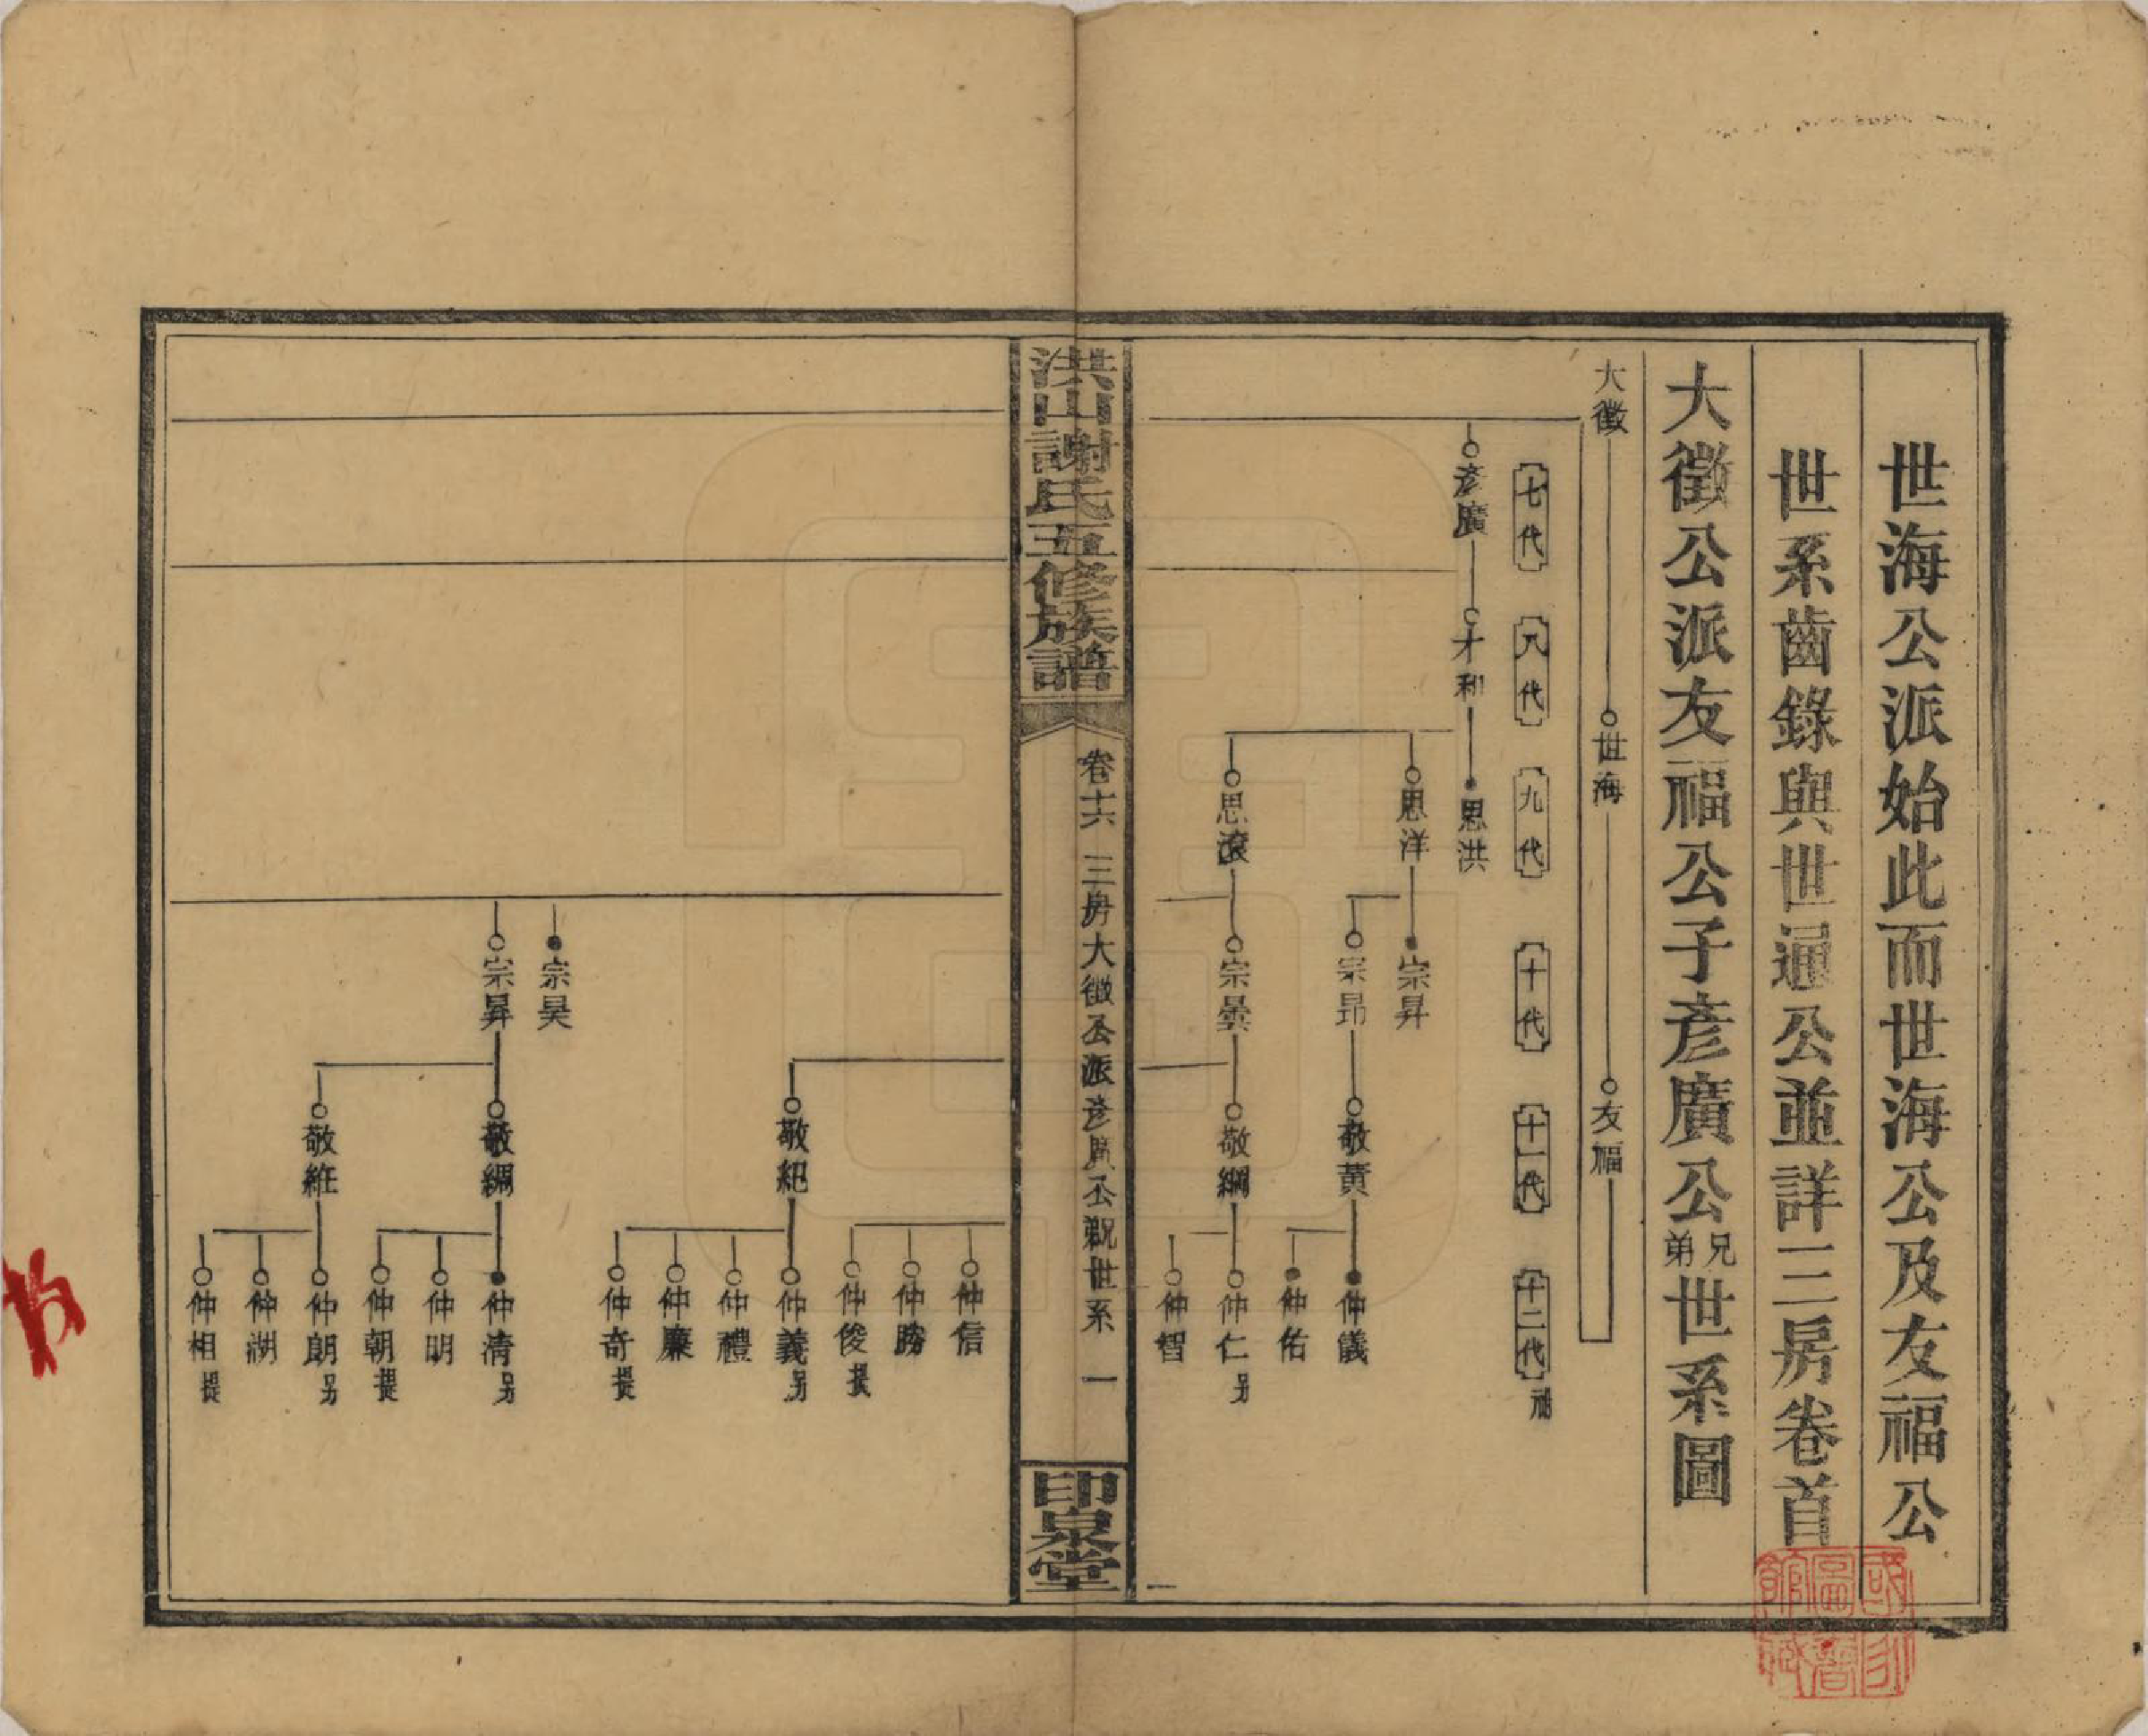 世海公派始此而世海公及友福公
世系齒錄與世通公並詳三房卷首
大徵公派友福公子彥廣公兄弟世系圖
大徵 世海 友福
七代 八代 九代 十代 十一代 十二代
彥廣 才和 思洪
思洋 宗昇
宗昻 敬黃 仲儀
仲佑
思滾 宗曇 敬綱 仲仁 另
仲智
洪山謝氏五修族譜
卷十六 三房大徵公派彥廣公 世系 一
印泉堂
仲信
仲勝
仲俊 提
敬紀 仲義 另
仲禮
仲廉
仲奇 提
宗昊
宗昇 敬綢 仲清 另
仲明
仲朝 提
敬維 仲朗 另
仲湖
仲相 提
國家圖書館藏